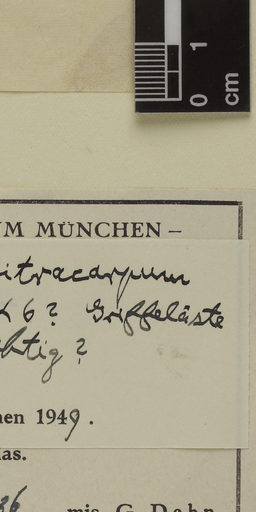 1
0
cm
UM MÜNCHEN –
itracarpum
6 ? Griffeläste
htig ?
en 1949.
as.
36 mis. G. Dahn